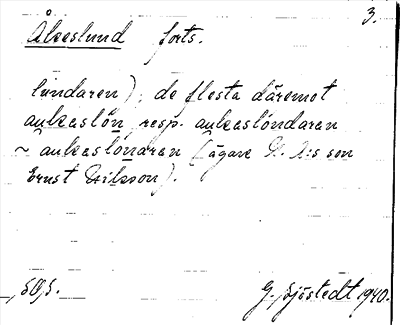 3.
Åkeslund forts.
lundaren); de flesta däremot
aukeslōn resp. aukeslöndaren
~ aukeslōndaren (ägare N. N:s son
Ernst Nilsson).
G. Sjöstedt 1940.